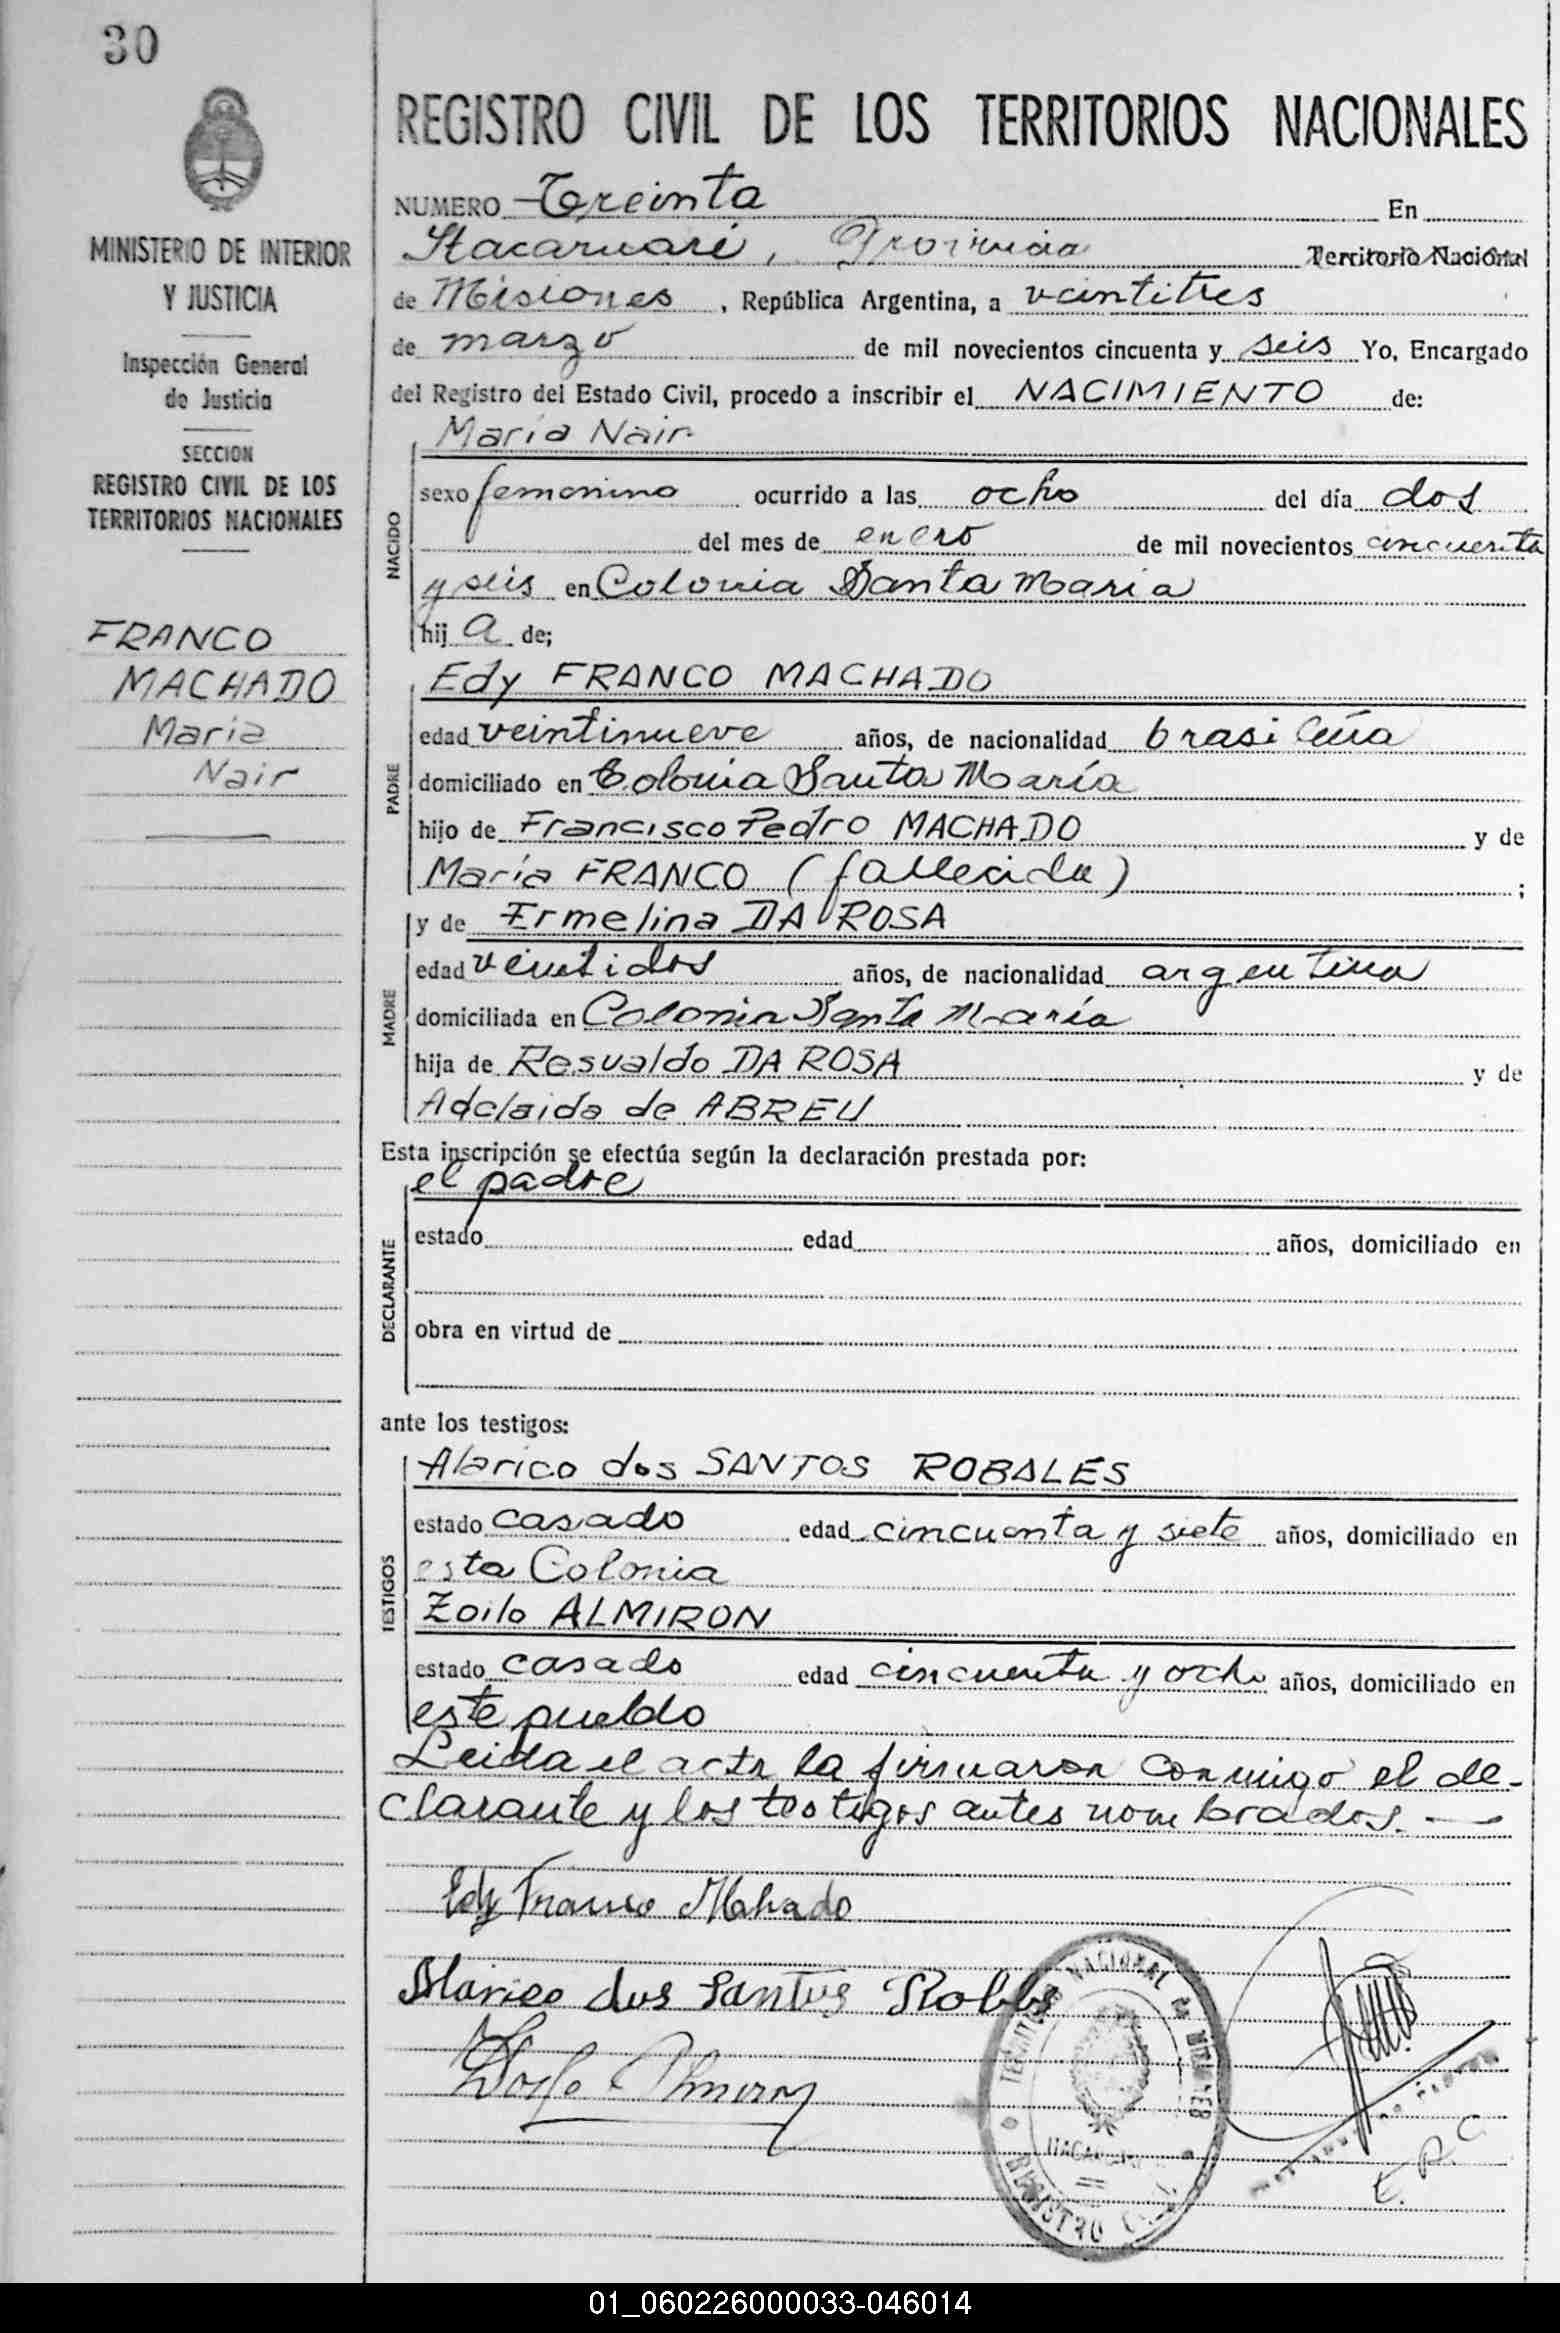 30
MINISTERIO DE INTERIOR
Y JUSTICIA
Inspección General
de Justicia
SECCION
REGISTRO CIVIL DE LOS
TERRITORIOS NACIONALES
FRANCO
MACHADO
Maria
Nair
REGISTRO CIVIL DE LOS TERRITORIOS NACIONALES
NUMERO Treinta En
Itacaruaré, Provincia Territorio Nacional
de Misiones, República Argentina, a veintitres
de marzo de mil novecientos cincuenta y seis Yo, Encargado
del Registro del Estado Civil, procedo a inscribir el NACIMIENTO de:
NACIDO
María Nair
sexo femenino ocurrido a las ocho del día dos
del mes de enero de mil novecientos cincuenta
y seis en Colonia Santa Maria
hij a de;
PADRE
Edy FRANCO MACHADO
edad veintinueve años, de nacionalidad brasileña
domiciliado en Colonia Santa María
hijo de Francisco Pedro MACHADO y de
María FRANCO (fallecida) ;
MADRE
y de Ermelina DA ROSA
edad veintidos años, de nacionalidad argentina
domiciliada en Colonia Santa María
hija de Resvaldo DA ROSA y de
Adelaida de ABREU
Esta inscripción se efectúa según la declaración prestada por:
DECLARANTE
el padre
estado edad años, domiciliado en
obra en virtud de
ante los testigos:
TESTIGOS
Alarico dos SANTOS ROBALES
estado casado edad cincuenta y siete años, domiciliado en
esta Colonia
Zoilo ALMIRON
estado casado edad cincuenta y ocho años, domiciliado en
este pueblo
Leida el acta la firmaron conmigo el de-
clarante y los testigos antes nombrados.—
Edy Franco Mahado
Alarico dos Santos
Zoilo Almiron
TERRITORIO NACIONAL DE MISIONES
REGISTRO
E. R. C.
01_060226000033-046014